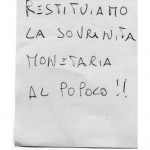 RESTITUIAMO
LA SOVRANITA
MONETARIA
AL POPOLO !!